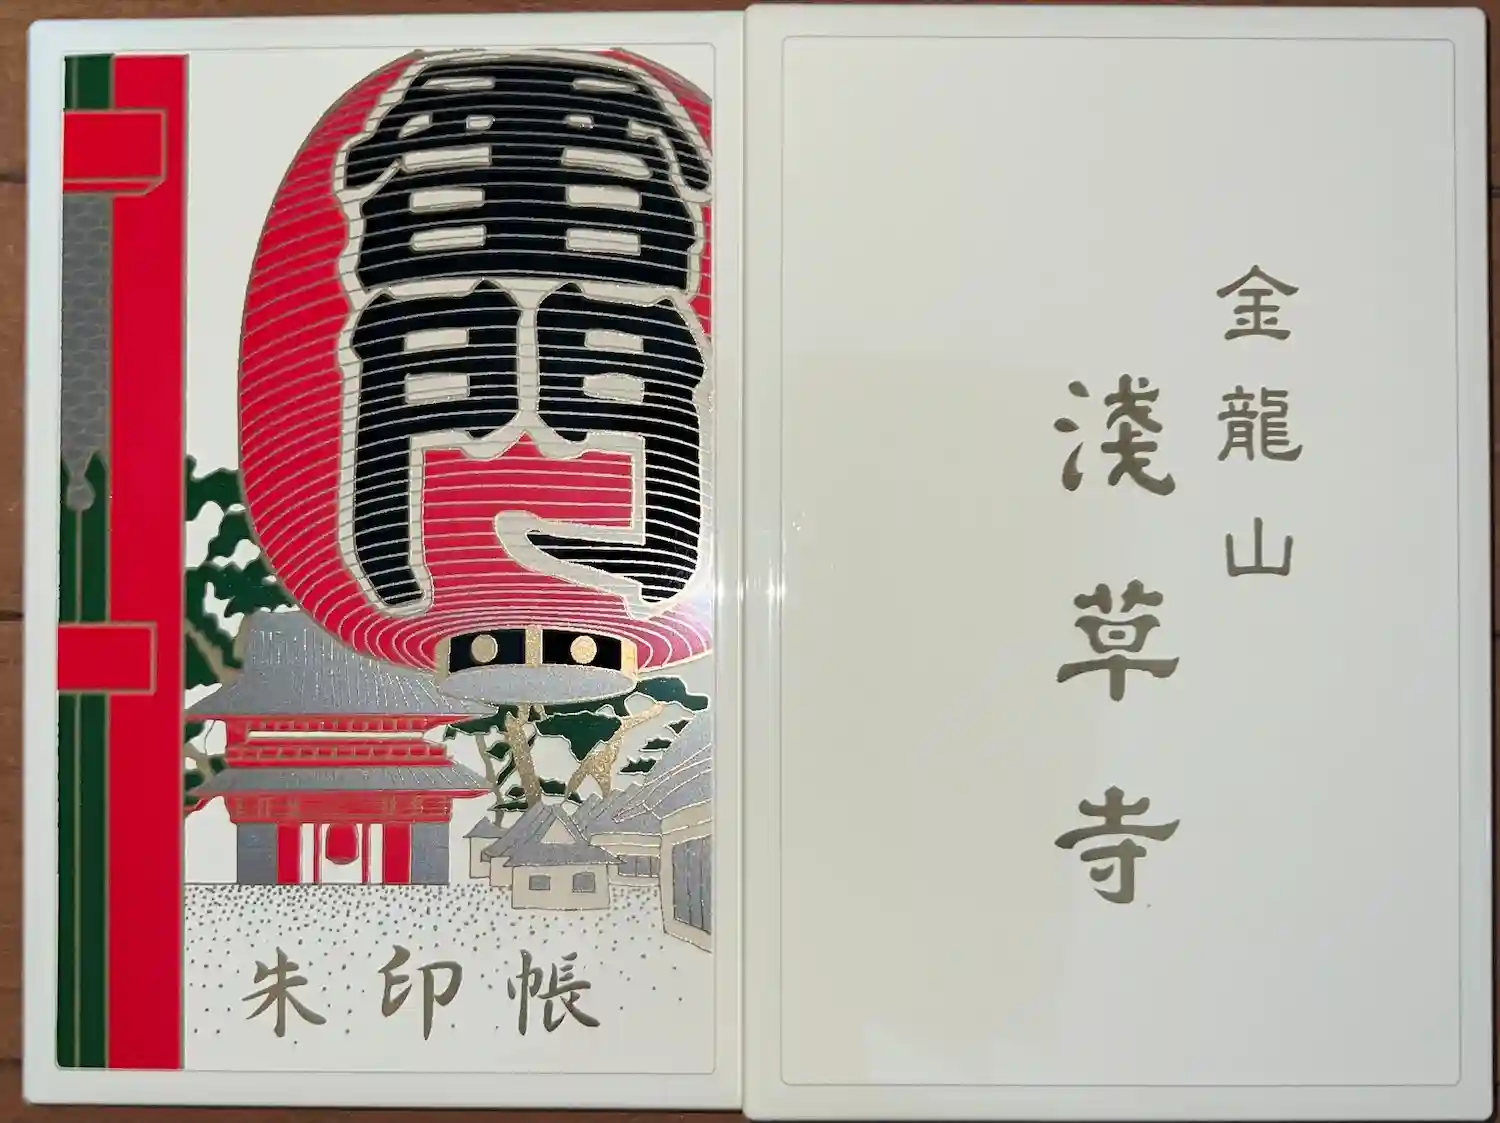 雷門
朱印帳
金龍山
淺草寺